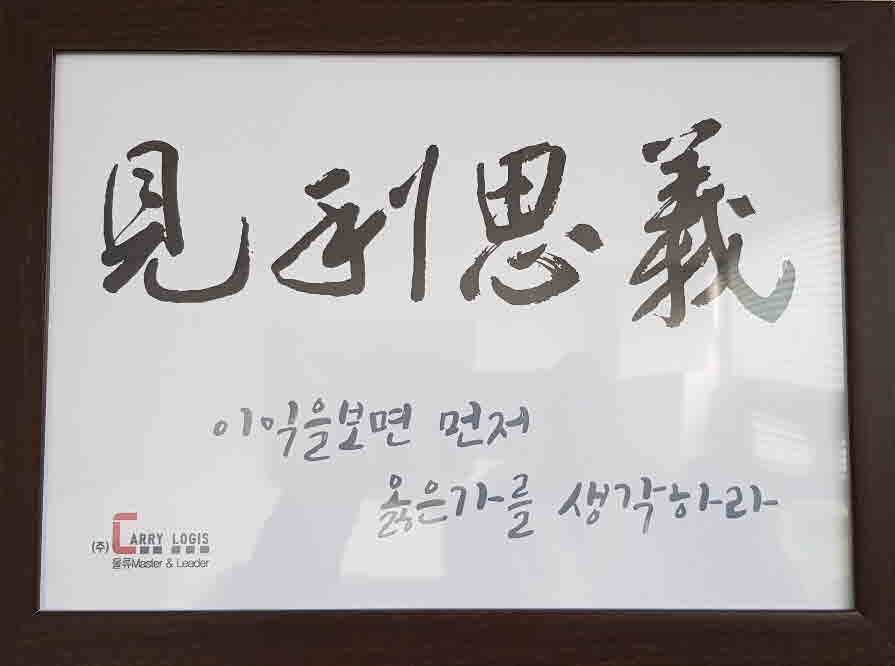 見利思義
이익을보면 먼저
옳은가를 생각하라
(주) CARRY LOGIS
물류Master & Leader